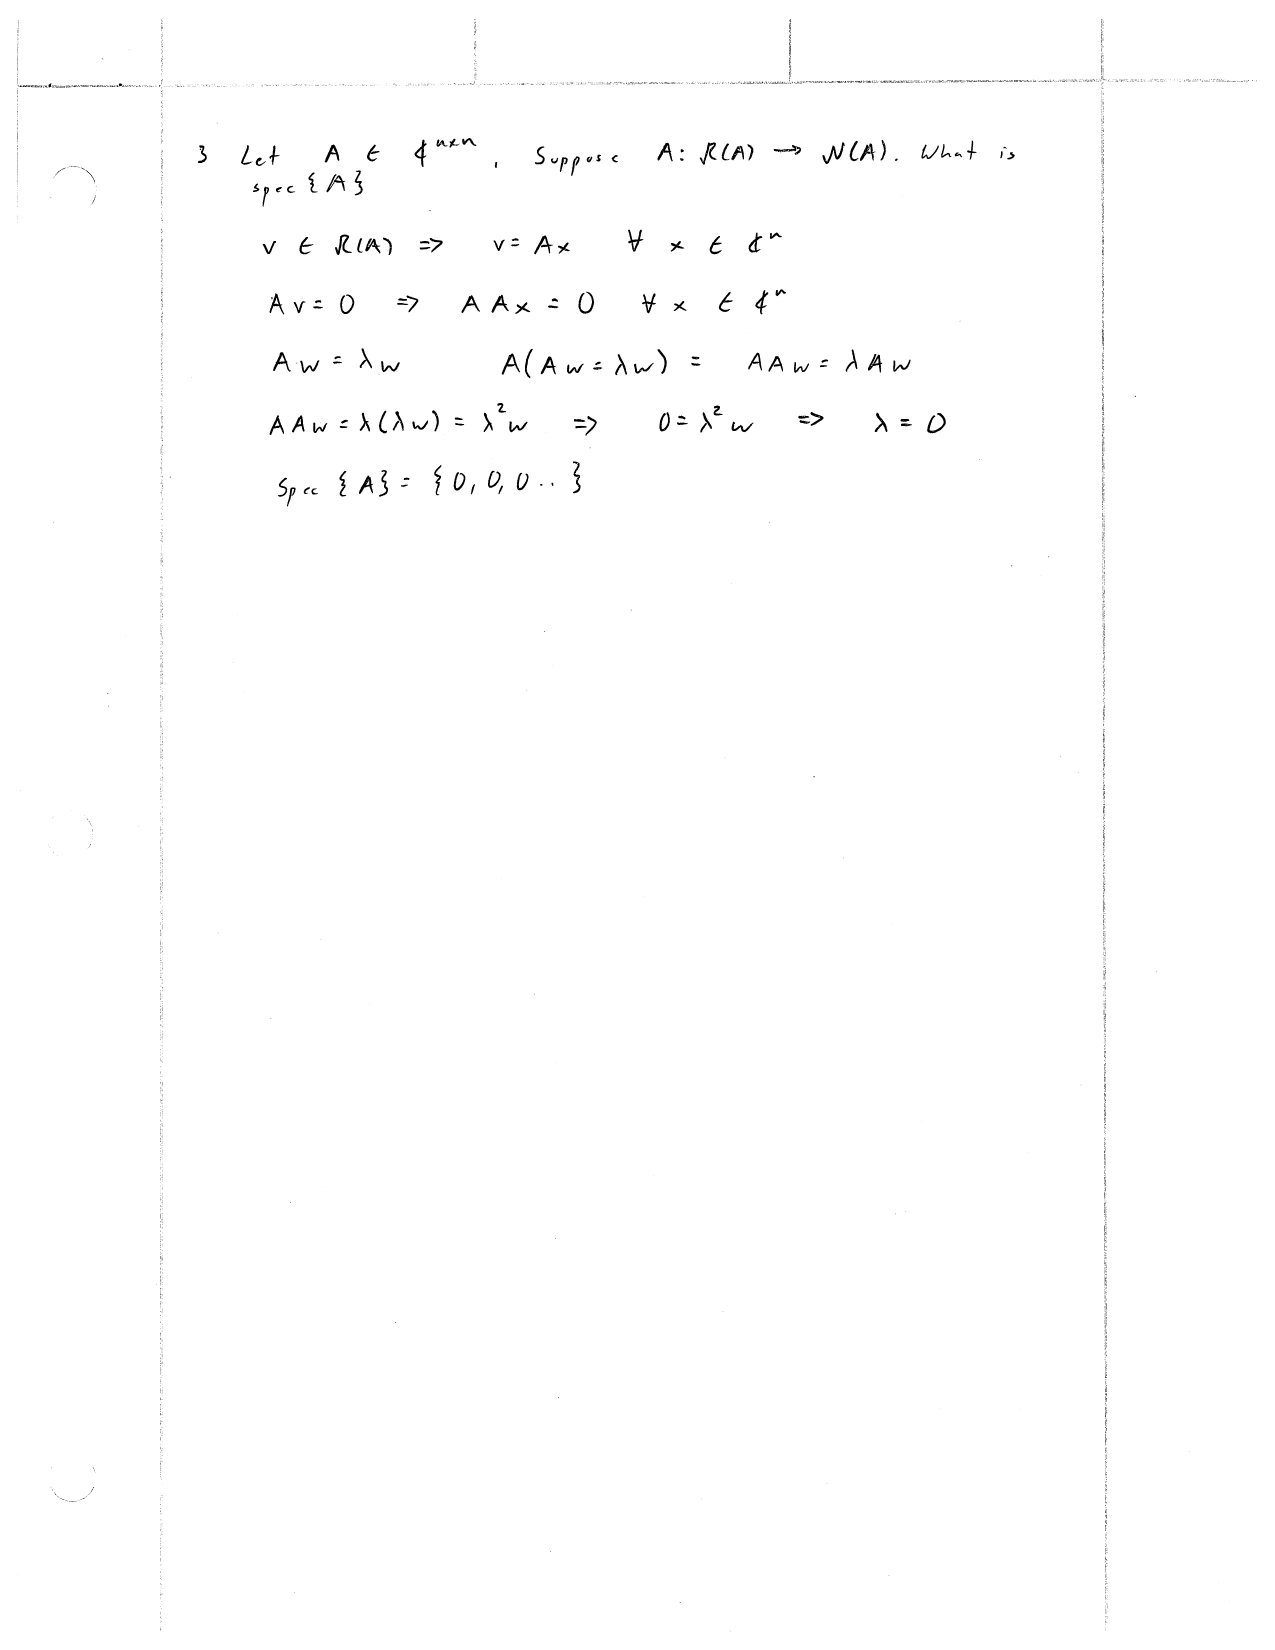 3 Let A ∈ ℂⁿˣⁿ, Suppose A: R(A) → N(A). What is
spec {A}
v ∈ R(A) => v = Ax ∀ x ∈ ℂⁿ
Av = 0 => AAx = 0 ∀ x ∈ ℂⁿ
Aw = λw A(Aw = λw) = AAw = λAw
AAw = λ(λw) = λ²w => 0 = λ²w => λ = 0
Spec {A} = {0, 0, 0 .. }